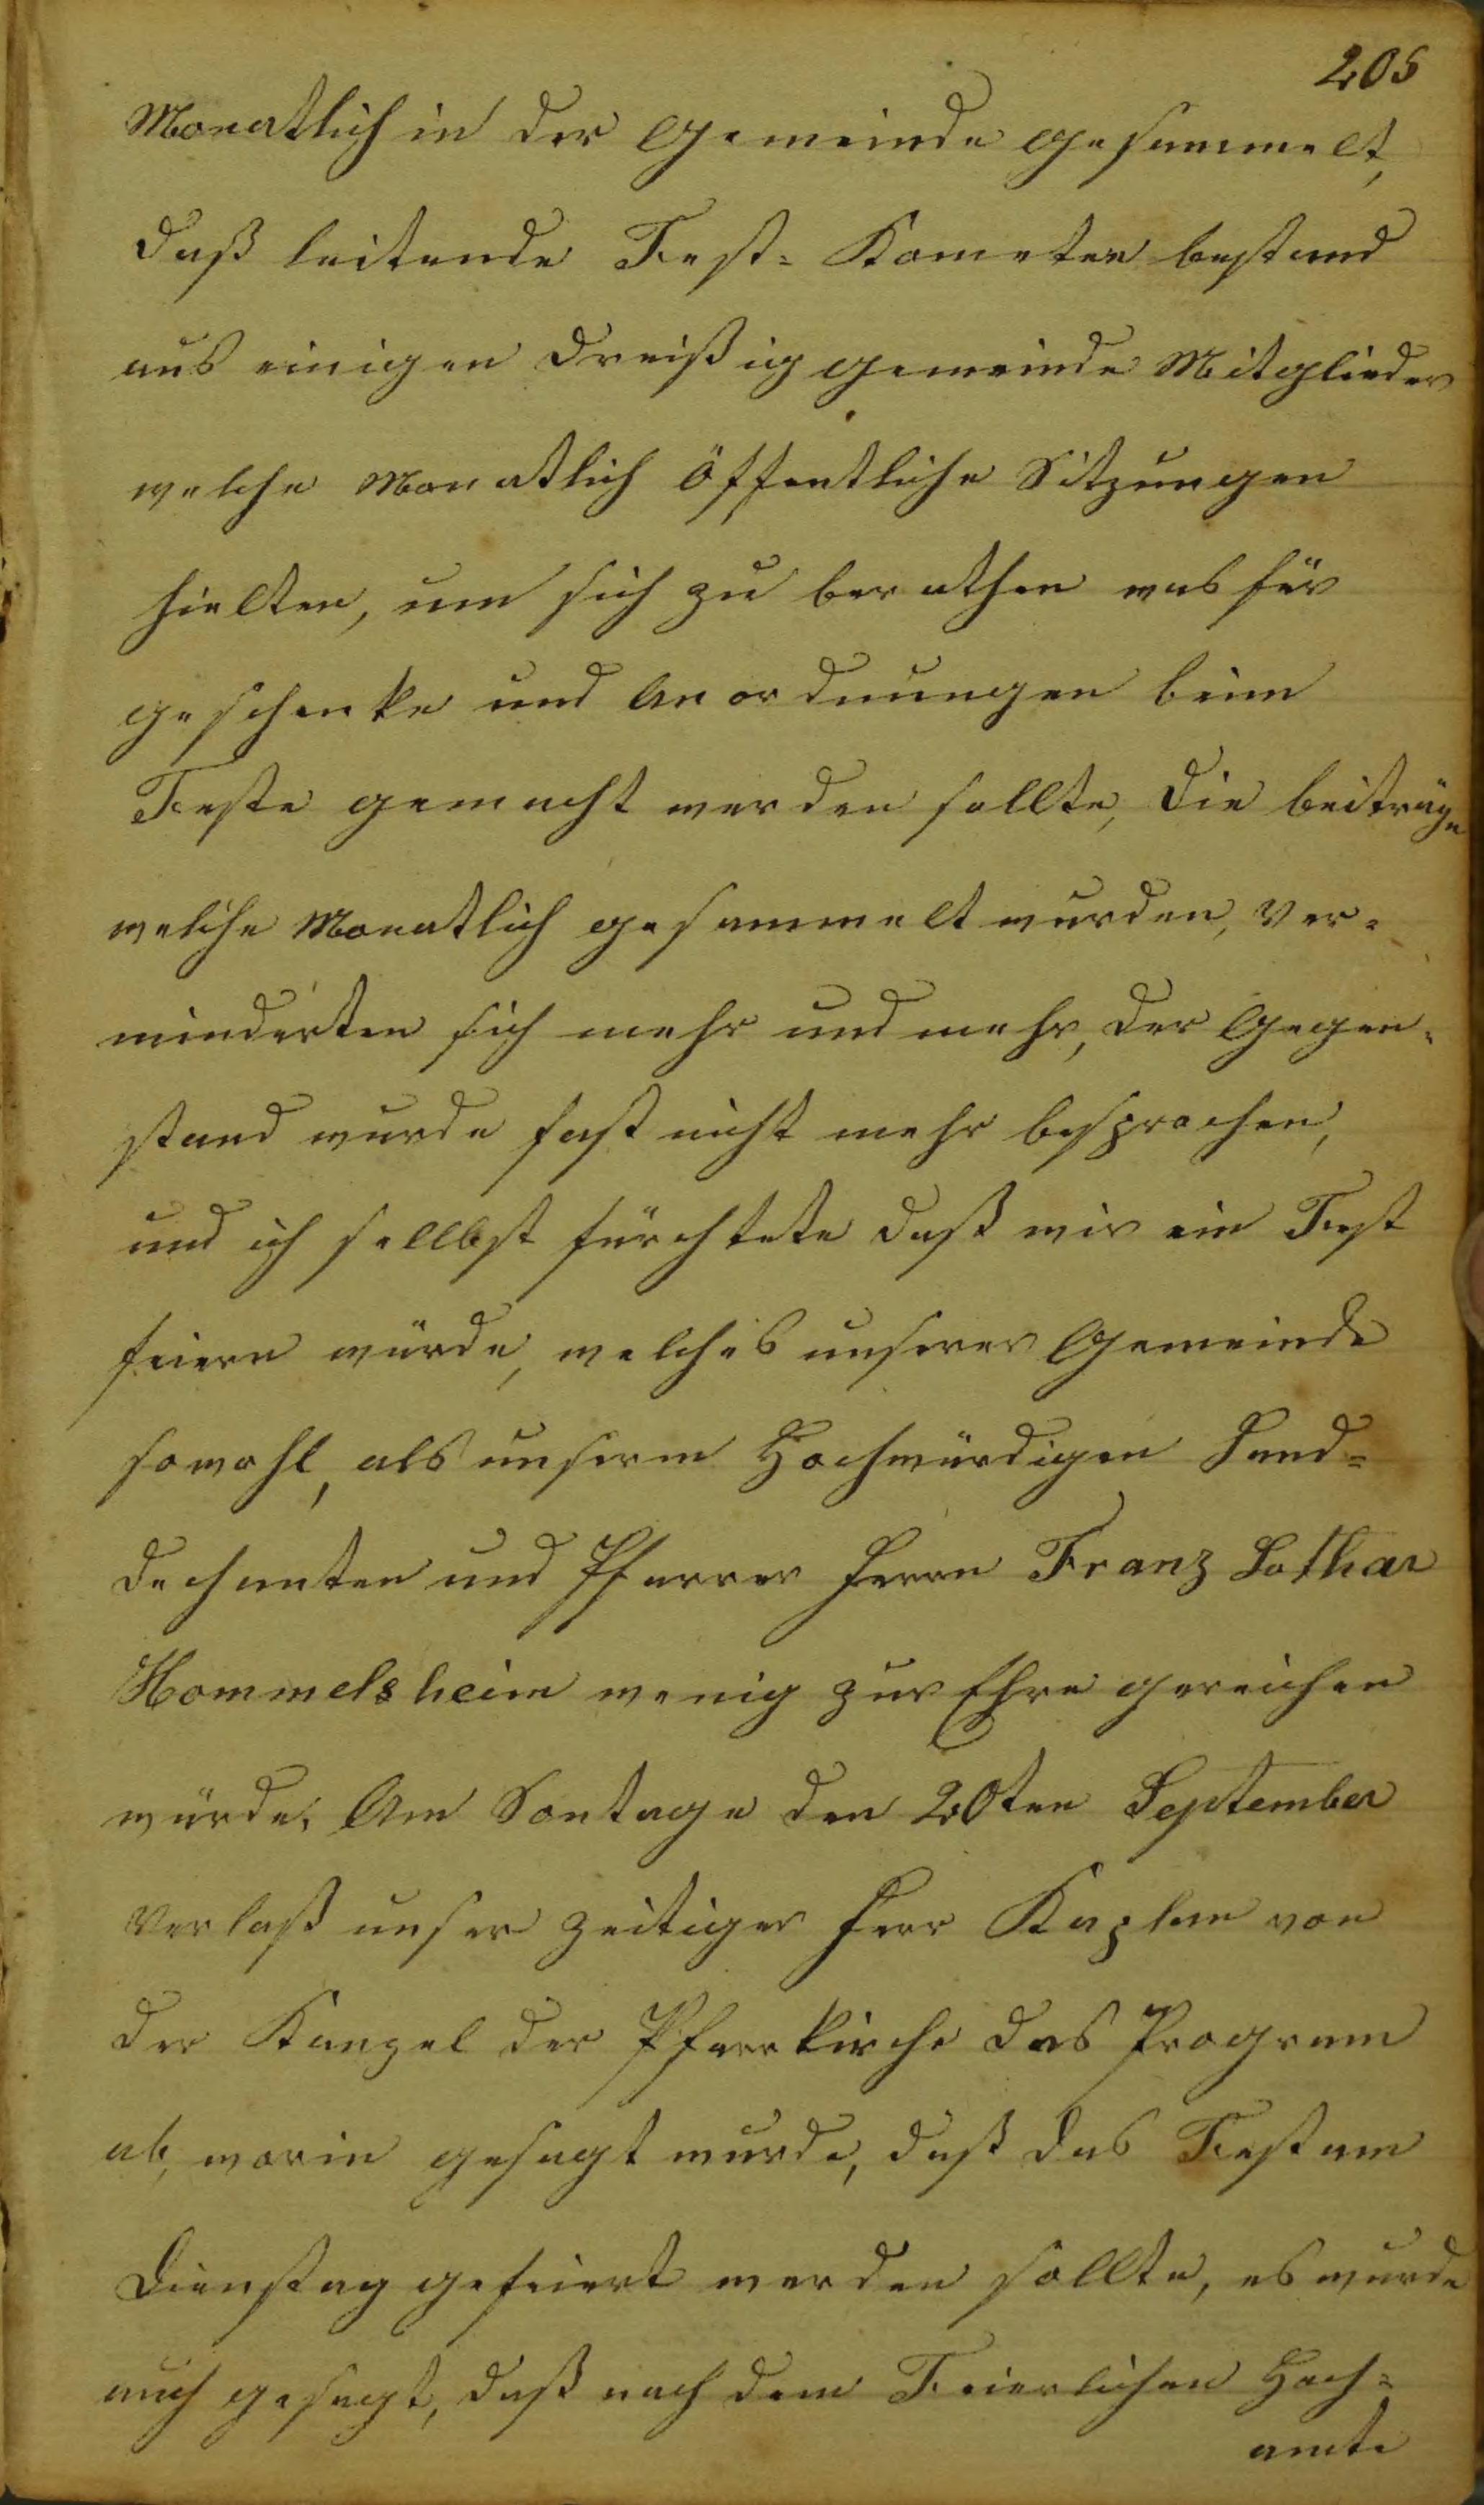 205
Monatlich in der Gemeinde gesammelt,
daß leitende Fest- Kometee bestand
aus einigen dreißig gemeinde Mitglieder
welche Monatlich öffentliche Sitzungen
hielten, um sich zu berathen was für
geschenke und Anordnungen beim
Feste gemacht werden sollte, die beiträge
welche Monatlich gesammelt wurden, ver-
minderten sich mehr und mehr, der Gegen-
stand wurde fast nicht mehr besprochen,
und ich sellbst fürchtete daß wir ein Fest
feiern würde, welches unserer Gemeinde
sowohl, als unserm Hochwürdigen Land-
dechanten und Pfarrer Herrn Franz Lothar
Hommelsheim wenig zur Ehre gereichen
würde. Am Sontage den 20ten September
verlaß unser zeitiger Herr Kaplan von
der Kanzel der Pfarrkirche das Program
ab, worin gesagt wurde, daß das Fest am
Dienstag gefeiert werden sollte, es wurde
auch gesagt, daß nach dem Feierlichen Hoch-
amte